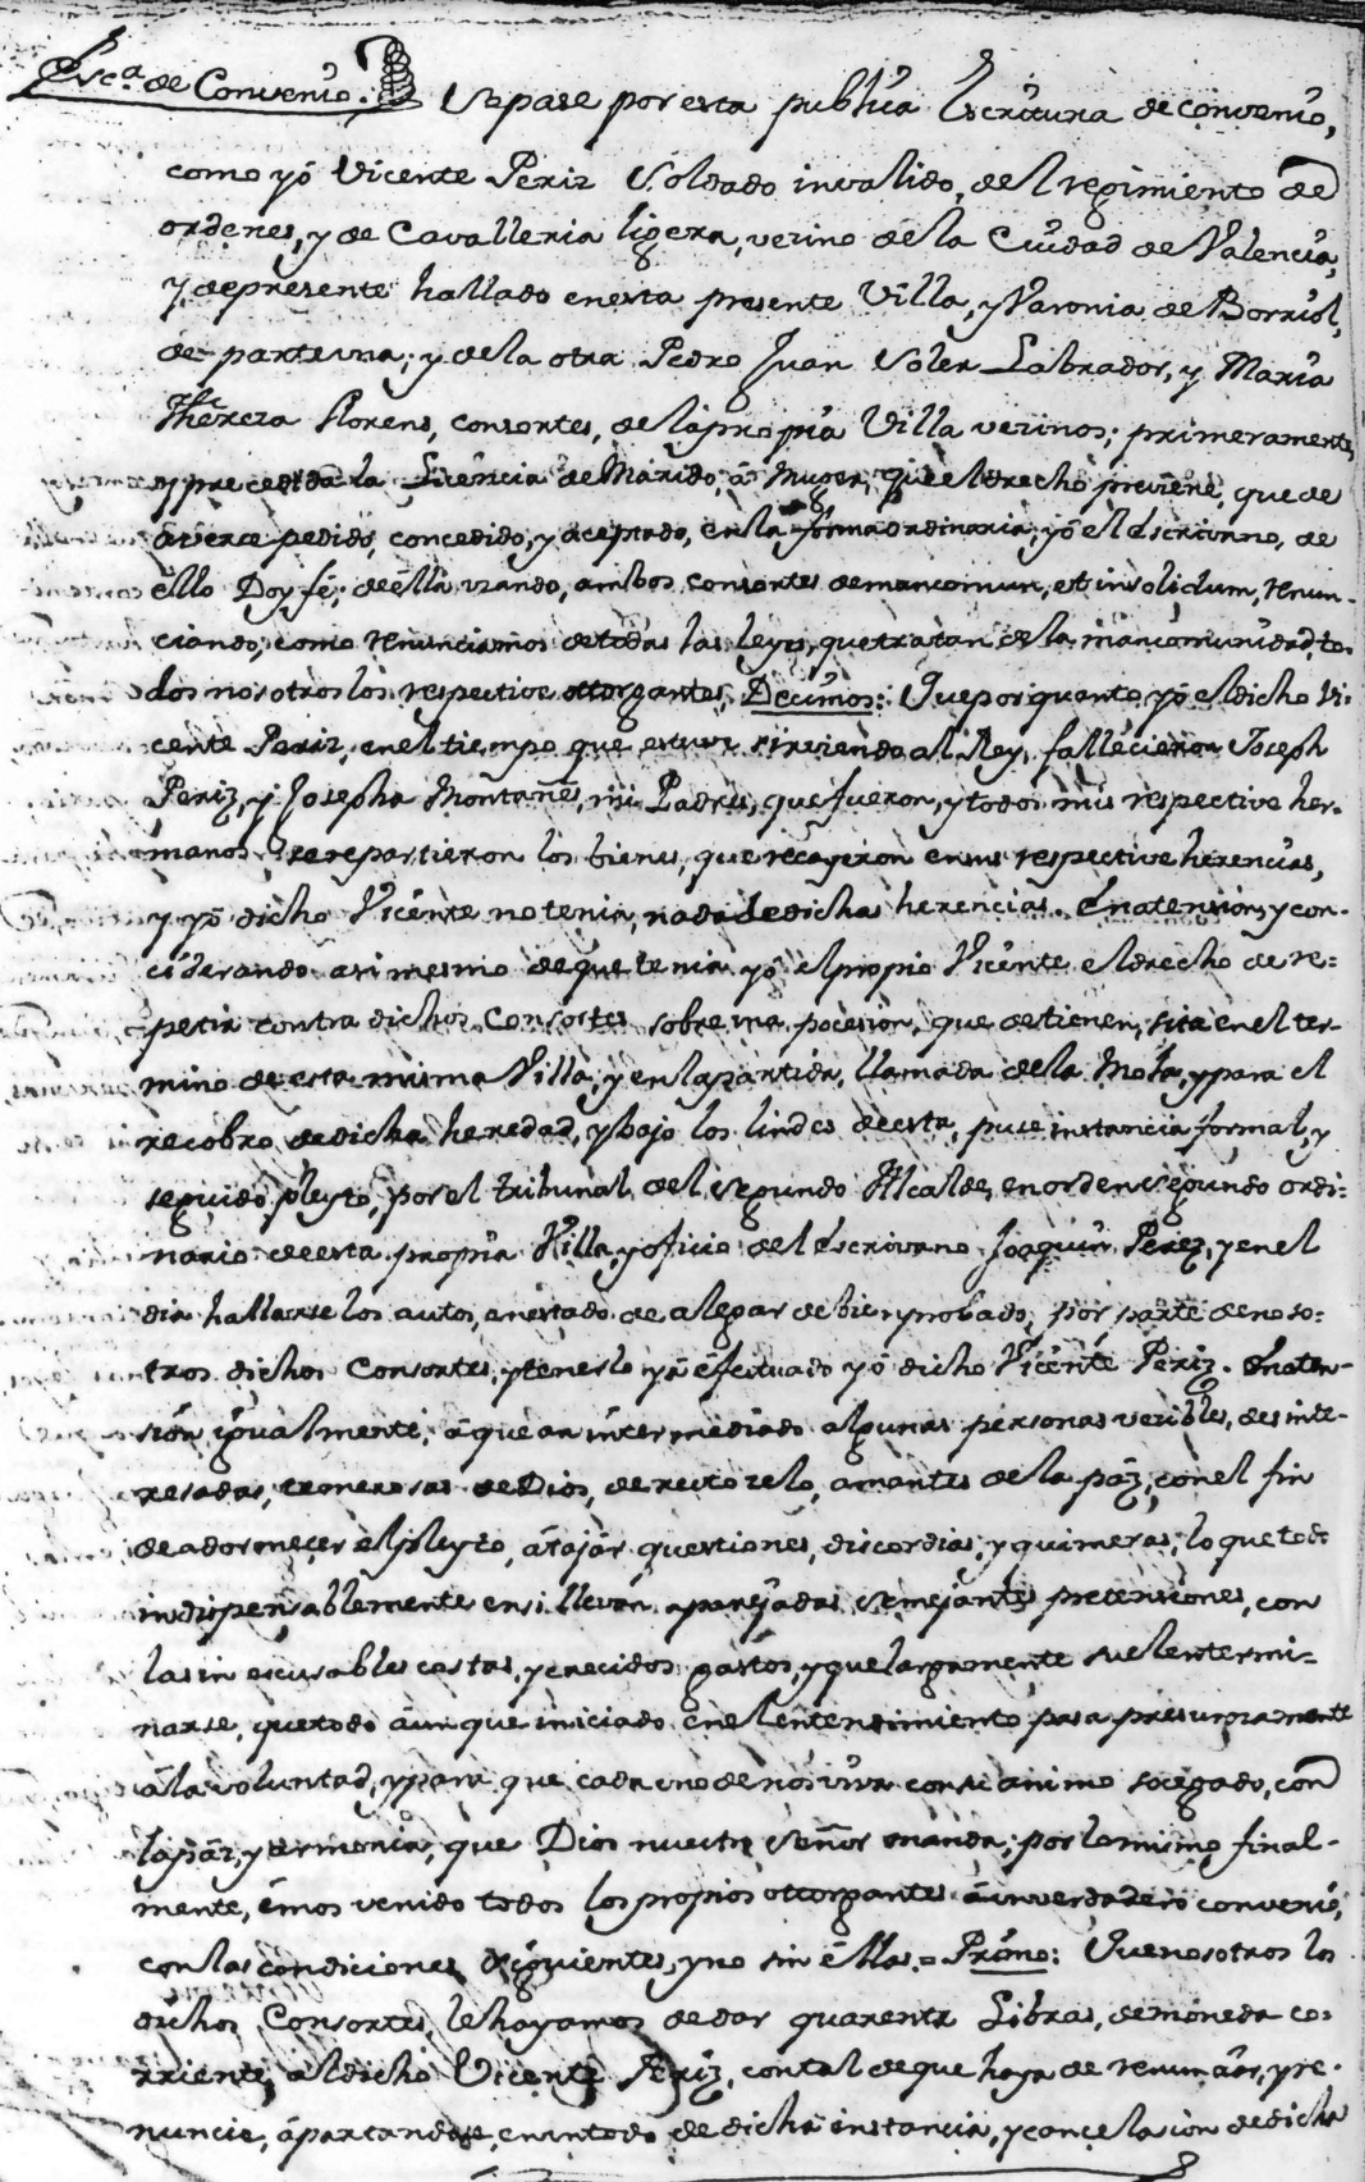 Escª. de Convenio. Sepase por esta publica Escritura de convenio,
como yó Vicente Periz Soldado invalido, del regimiento de
ordenes, y de Cavalleria ligera, vezino de la Ciudad de Valencia,
y de presente hallado en esta presente Villa, y Varonia de Borriol,
de parte una; y de la otra Pedro Juan Soler Labrador, y Maria
Thereza Florens, consortes, de la propia Villa vezinos; primeramente,
y precedida la Licencia de Marido, á Muger, que el drecho previene, que de
averce pedido, concedido, y aceptado, en la forma ordinaria, yó el Escrivano, de
ello Doy fé; de élla uzando, ambos consortes de mancomun, et insolidum, renun-
ciando, como renunciamos de todas las leyes, que tratan de la mancomunidad, to-
dos nosotros los respective ottorgantes, Decimos: Que por quanto yó el dicho Vi-
cente Periz, en el tiempo que estuve sirviendo al Rey, fallecieron Joseph
Periz, y Josepha Montañes, mis Padres, que fueron, y todos mis respective her-
manos se repartieron los bienes, que recayeron en sus respective herencias,
y yó dicho Vicente no tenia, nada de dichas herencias. En atension, y con-
ciderando asimesmo de que tenia yó el propio Vicente el drecho de re=
petir contra dichos Consortes sobre una pocesion, que detienen, sita en el ter-
mino de esta misma Villa, y en la partida, llamada de la Mota, y para el
recobro de dicha heredad, y bajo los lindes de esta, puce instancia formal, y
seguido pleyto, por el tribunal del segundo Alcalde, en orden segundo ordi=
nario de esta propia Villa, y oficio del Escrivano Joaquin Perez, y en el
dia hallarse los autos, en estado de alegar de bien probado, por parte de noso=
tros dichos Consortes, y tenerlo yá éfectuado yó dicho Vicente Periz. En aten-
sión igualmente, á que an intermediado algunas personas vezibles, desinte-
resadas, temerosas de Dios, de recto zelo, amantes de la páz, con el fin
de adormeçer el pleyto, átajár questiones, discordias, y quimeras, lo que todo
indispensablemente en si llevan aparejadas semejantes pretensiones, con
las in escusables costas, y crecidos gastos, y que largamente suelen termi=
narse, que todo áunque iniciado en el entendimiento pasa presurozamente
á la voluntad, y para que cada uno de nos viva con su animo socegado, con
la páz, y ármonia, que Dios nuestro Señor manda; por lo mismo final-
mente, émos venido todos los propios ottorgantes á un verdadero convenio,
con las condiciones siguientes, y no sin éllas. = Primo: Que nosotros los
dichos Consortes, le hayamos de dar quarenta Libras, de moneda co-
rriente, al dicho Vicente Periz, con tal de que haya de renunciar, y re-
nuncie, ápartandose, en un todo de dicha instancia, y cancelacion de dicha